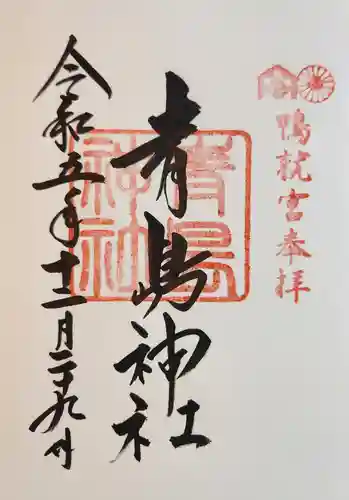 鴨就宮奉拝
青島神社
青島
神社
令和五年十一月二十九日